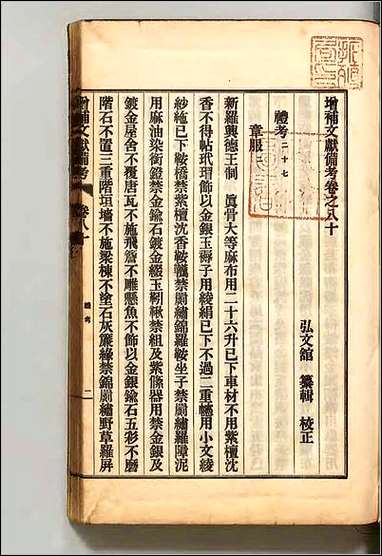 增補文獻備考卷之八十
弘文館 纂輯 校正
禮考二十七
章服
新羅興德王制 眞骨大等麻布用二十六升已下車材不用紫檀沈
香不得帖玳瑁飾以金銀玉褥子用綾絹已下不過二重轓用小文綾
紗絁已下鞍橋禁紫檀沈香鞍韉禁罽繡錦羅鞍坐子禁罽繡羅障泥
用麻油染銜鐙禁金鍮石鍍金綴玉靷鞦禁組及紫絛器用禁金銀及
鍍金屋舍不覆唐瓦不施飛簷不雕懸魚不飾以金銀鍮石五彩不磨
階石不置三重階垣墻不施梁棟不塗石灰簾緣禁錦罽繡野草羅屛
增補文獻備考
卷八十
禮考
二